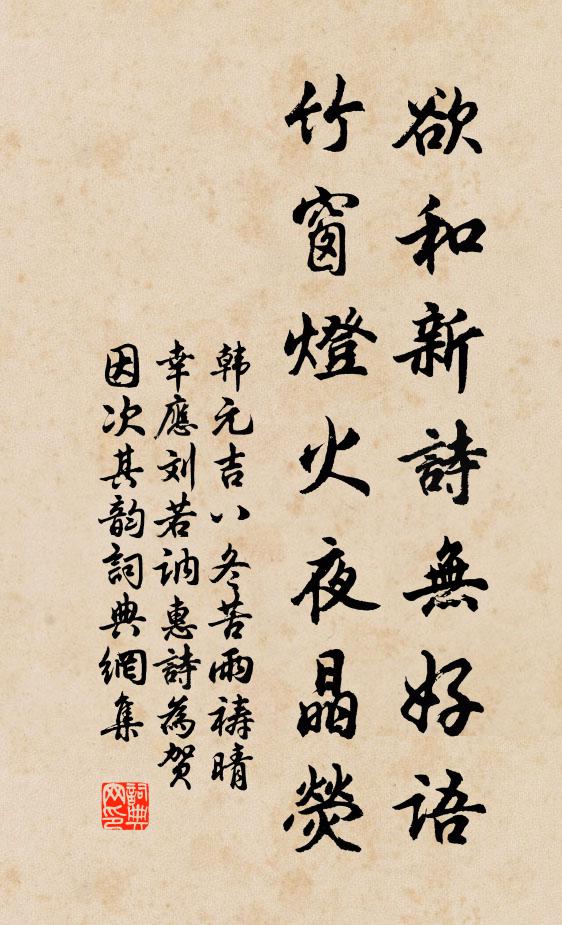 欲和新詩無好语
竹窗燈火夜晶熒
韩元吉八冬苦雨祷晴
幸應刘若讷惠詩為贺
因次其韵詞典網集
詞典网印